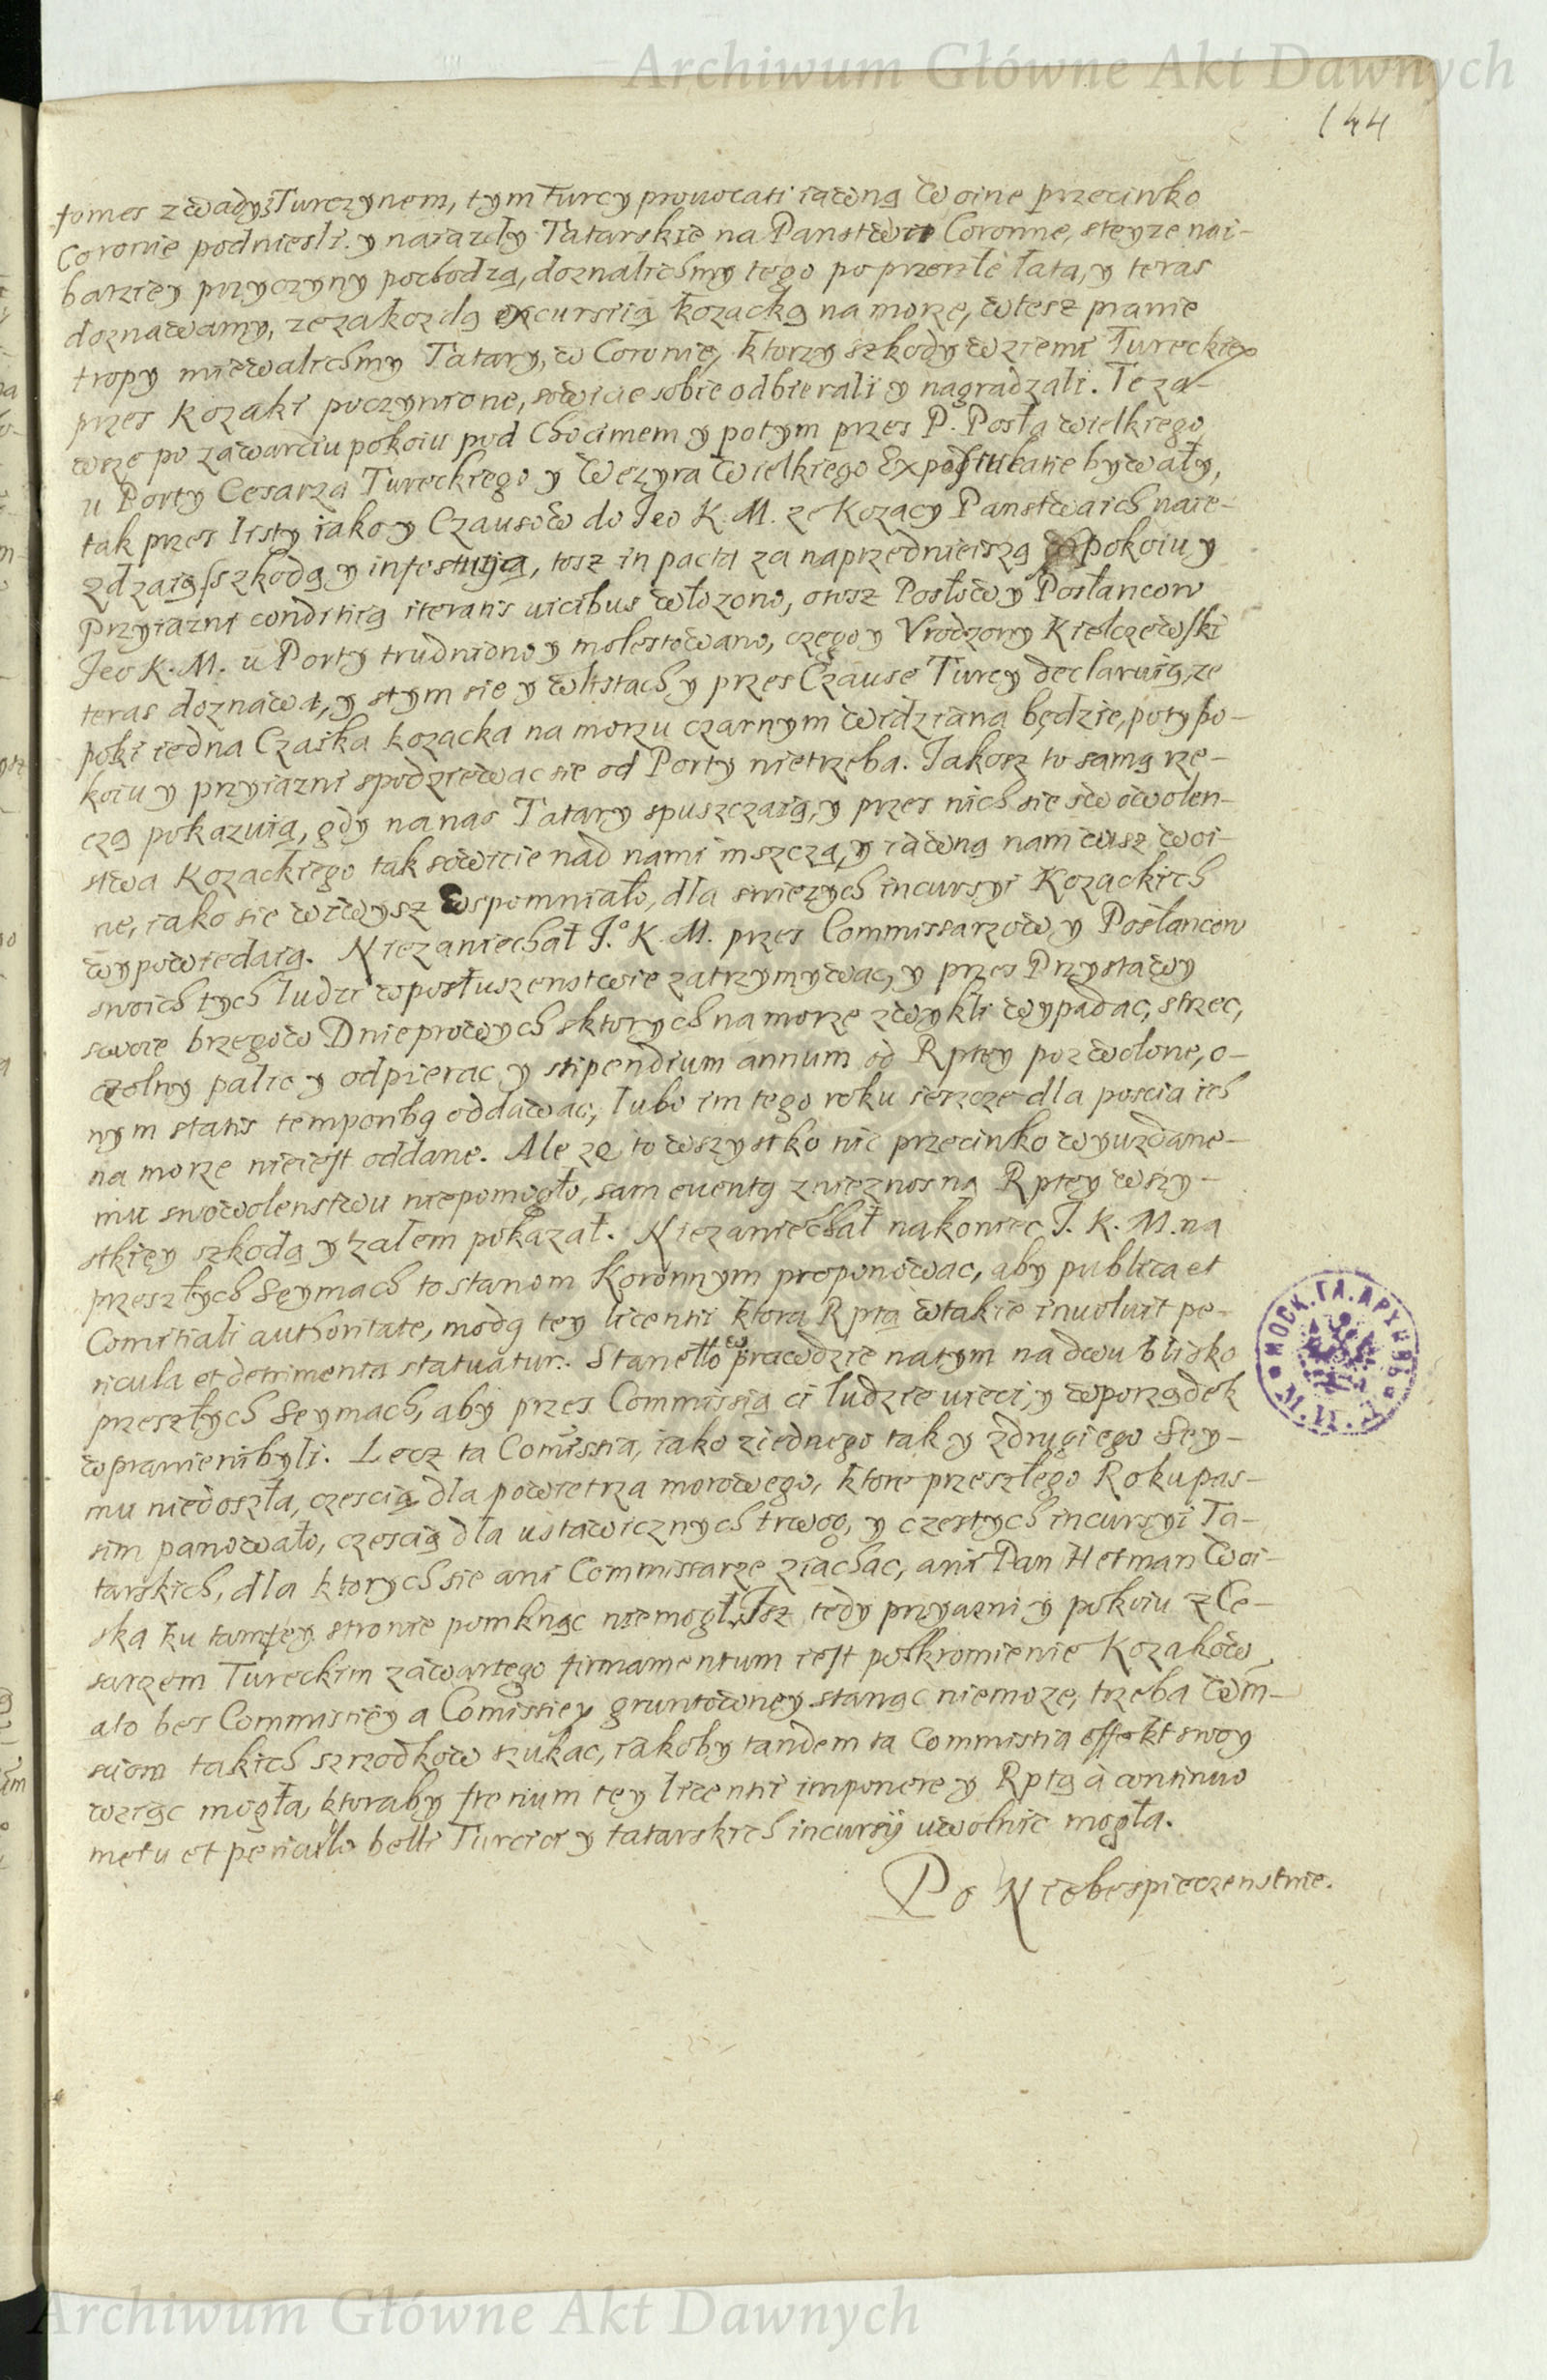 Archiwum Główne Akt Dawnych
144
fomes zwady z Turczynem, tym Turcy prouocati iawną woine przeciwko
Coronie podniesli. y naiazdy Tatarskie na Panstwa Coronne, steyze nai-
barziey przyczyny pochodzą, doznalichmy tego po przeszłe lata, y teras
doznawamy, ze za kozdą excursią kozacką na morze, wtesz prawie
tropy miewalichmy Tatary, w Coronie, ktorzy szkody w ziemi Tureckiey
przes Kozaki poczynione, sowicie sobie odbierali y nagradzali. Te za-
wsze po zawarciu pokoiu pod Chocimem y potym przes P. Posła wielkiego
u Porty Cesarza Tureckiego y Wezyra Wielkiego Expostulatie bywały,
tak przes listy iako y Czausow do Jeo K. M. ze Kozacy Panstwa ich naie-
zdzaią szkodą y infestuią, tosz in pacta za naprzednieiszą pokoiu y
Przyiazni conditią iteratis uicibus włozono, otosz Posłow y Posłancow
Jeo K. M. u Porty trudniono y molestowano, czego y Vrodzony Kielczewski
teras doznawa, y stym sie y w listach y przes Czause Turcy declaruią, ze
poki iedna Czaika kozacka na morzu czarnym widziana będzie, poty po-
koiu y przyiazni spodziewac sie od Porty nietrzeba. Jakosz to samą rze-
czą pokazuią, gdy na nas Tatary spuszczaią, y przes nich sie swowolen-
stwa Kozackiego tak sowicie nad nami mszczą, y iawną nam iusz woi-
ne, iako sie wwysz wspomniało, dla swiezych incursyi Kozackich
wypowiedaią. Niezaniechał J.o K. M. przes Commissarzow y Posłancow
swoich tych ludzi w posłuszenstwie zatrzymywac, y przes Przystawy
swoie brzegow Dnieprowych sktorych na morze zwykli wypadac, strzec,
czolny palic y odpierac y stipendium annuum od Rptey pozwolone, o-
nym statis temporibq oddawac, lubo im tego roku ieszcze dla poscia ich
na morze nieiest oddane. Ale ze to wszystko nic przeciwko wyuzdane-
mu swowolenstwu niepomogło, sam euentq z nieznosną Rptey wszy-
stkiey szkodą y zalem pokazał. Niezaniechał nakoniec J. K. M. na
przeszłych Seymach to stanom Koronnym proponowac, aby publica et
Comitiali authoritate, modq tey licentii ktora Rptą w takie inuoluit pe-
ricula et detrimenta statuatur. Stanełło wprawdzie na tym na dwu blisko
przeszłych Seymach, aby przes Commissią ci ludzie uieci, y w porządek
wprawieni byli. Lecz ta Comissia, iako z iednego tak y z drugiego Sey-
mu niedoszła, czescią dla powietrza morowego, ktore przeszłego Roku pas-
sim panowało, czescią dla ustawicznych trwog, y czestych incursyi Ta-
tarskich, dla ktorych sie ani Commissarze ziachac, ani Pan Hetman Woi-
ska ku tamtey stronie pomknąc niemogł. Isz tedy przyazni y pokoiu z Ce-
sarzem Tureckim zawartego firmamentum iest poskromienie Kozakow,
a to bes Commissiey a Comissiey gruntowney stanąc niemoze, trzeba Wm-
sciom takich szrzodkow szukac, iakoby tandem ta Commissia effekt swoy
wziąc mogła, ktoraby frenum tey licentii imponere y Rptą à continuo
metu et periculo belli Turcici y tatarskich incursij uwolnic mogła.
Po Niebespieczenstwie.
МОСК. ГЛ. АРХИВЪ
Archiwum Główne Akt Dawnych